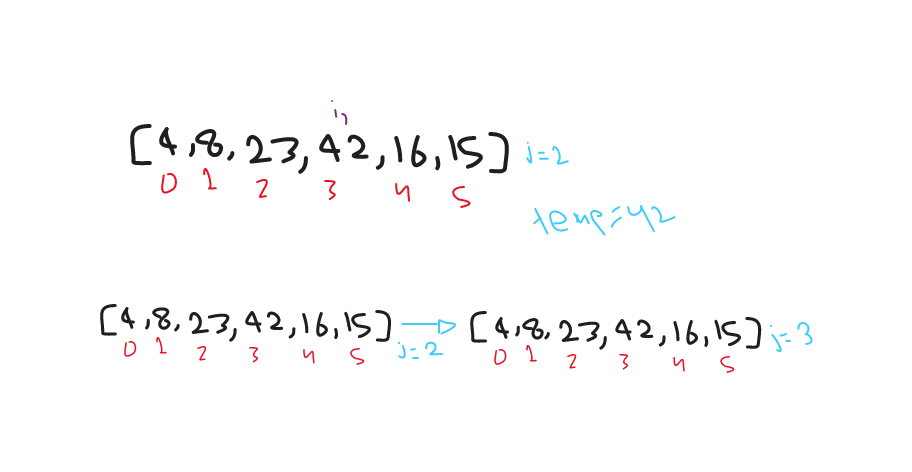 i,
[4,8,23,42,16,15] j=2
0 1 2 3 4 5
temp=42
[4,8,23,42,16,15] j=2 [4,8,23,42,16,15] j=3
0 1 2 3 4 5 0 1 2 3 4 5